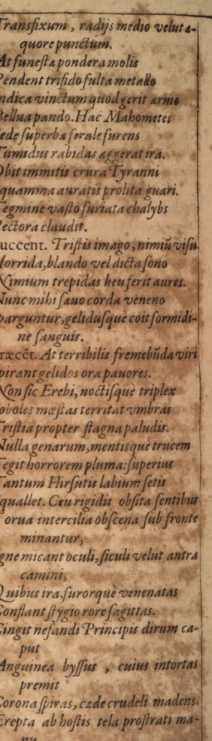 Transfixum, radijs medio velut æ-
quore punctum.
At funesta pondera molis
Pendent trifido fulta metallo
Indica vinctum quod gerit armo
Bellua pando. Hac Mahometes
Sede superba ferale furens
Tumidus rabidas aggerat ira.
Obit immitis crura Tyranni
Squamma auratis prolita guari.
Tegmine vasto suriata chalybs
Pectora claudit.
succent. Tristis imago, nimiũ visu
Horrida, blando vel dicta sono
Nimium trepidas heu ferit aures.
Nunc mihi sauo corda veneno
sparguntur, gelidusque coit formidi-
ne sanguis.
præcẽt. At terribilis fremebũda viri
spirant gelidos ora pauores.
Non sic Erebi, noctisque triplex
soboles mœstas territat vmbras
Tristia propter stagna paludis.
Nulla genarum, mentisque trucem
Tegit horrorem pluma: superius
Tantum Hirsutis labium setis
squallet. Ceu rigidis obsita sentibus
Torua intercilia obscena sub fronte
minantur,
Igne micant oculi, siculi velut antra
camini,
Quibus ira, furorque venenatas
Conflant stygio rore sagittas.
Cingit nefandi Principis dirum ca-
put
Anguinea byssus, cuius intortas
premit
Corona spiras, cæde crudeli madens.
Erepta ab hostis tela prostrati ma-
nu